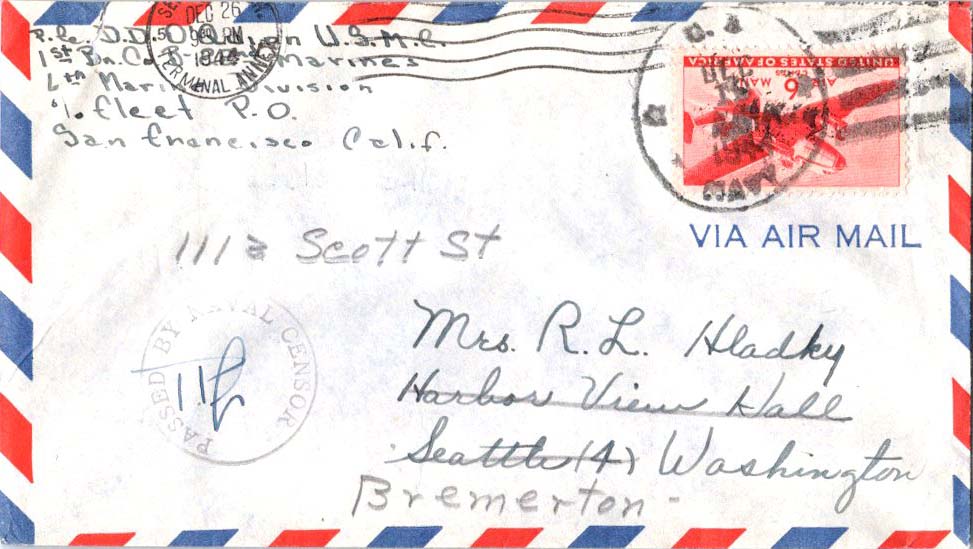 DEC 26
9 PM
1944
TERMINAL ANNEX
U.S.M.C.
1st Bn. Co. B Marines
Marine Division
℅ fleet P.O.
San francisco Calif.
UNITED STATES OF AMERICA
6 CENTS
AIR MAIL
U. S.
NAVY
DEC
VIA AIR MAIL
1112 Scott St
PASSED BY NAVAL CENSOR
Mrs. R. L. Hladky
Harbor View Hall
Seattle (4) Washington
Bremerton -